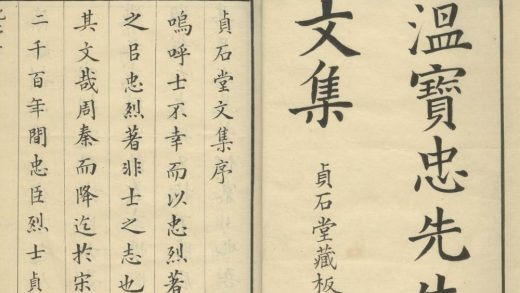 溫寶忠先生
文集
貞石堂藏板
貞石堂文集序
嗚呼士不幸而以忠烈著
之曰忠烈著非士之志也
其文哉周秦而降迄於宋
二千百年間忠臣烈士貞